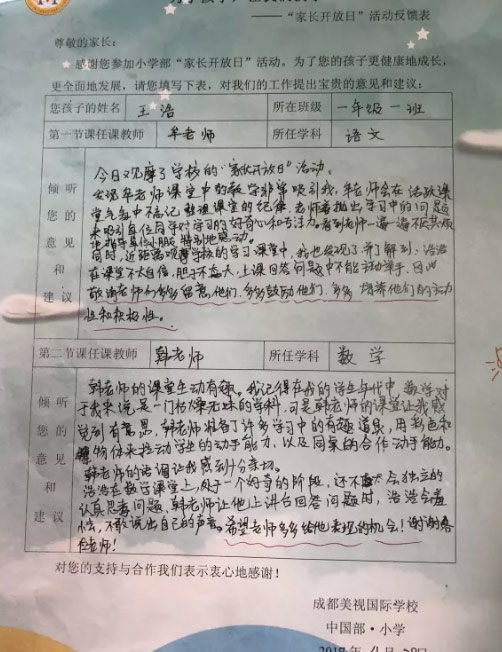 ——“家长开放日”活动反馈表
尊敬的家长:
感谢您参加小学部“家长开放日”活动。为了您的孩子更健康地成长,
更全面地发展,请您填写下表,对我们的工作提出宝贵的意见和建议:
您孩子的姓名 王浩 所在班级 一年级一班
第一节课任课教师 牟老师 所任学科 语文
倾听您的意见和建议
今日观摩了学校的“家长开放日”活动。
发现牟老师课堂中的教学非常吸引我,牟老师会在活跃课
堂气氛中不忘记整理课堂的纪律,老师看抛出学习中的问题
来吸引每位同学对学习的好奇心和专注力。看到老师一遍一遍不厌其烦
地指导每位小朋友,特别地感动。
同时,近距离观摩学校的学习课堂中,我也发现了并了解到:浩浩
在课堂不太自信,胆子不太大,上课回答问题中不能主动举手,因此
敬请老师们多多留意他们,多多鼓励他们,多多培养他们的主动
性和积极性。
第二节课任课教师 韩老师 所任学科 数学
倾听您的意见和建议
韩老师的课堂生动有趣。我记得在我的学生年代中,数学对
于我来说是一门枯燥无味的学科,可是韩老师的课堂让我感
觉到有意思,韩老师准备了许多学习中的有趣道具,用颜色和
物体来拉动学生的动手能力,以及同桌的合作动手能力。
韩老师的语调让我感到十分亲切。
浩浩在数学课堂上,处于一个好奇的阶段,还不太会独立的
认真思考问题,韩老师让他上讲台回答问题时,浩浩会羞
怯,不敢说出自己的声音。希望老师多多给他表现的机会!谢谢各
位老师!
对您的支持与合作我们表示衷心地感谢!
成都美视国际学校
中国部·小学